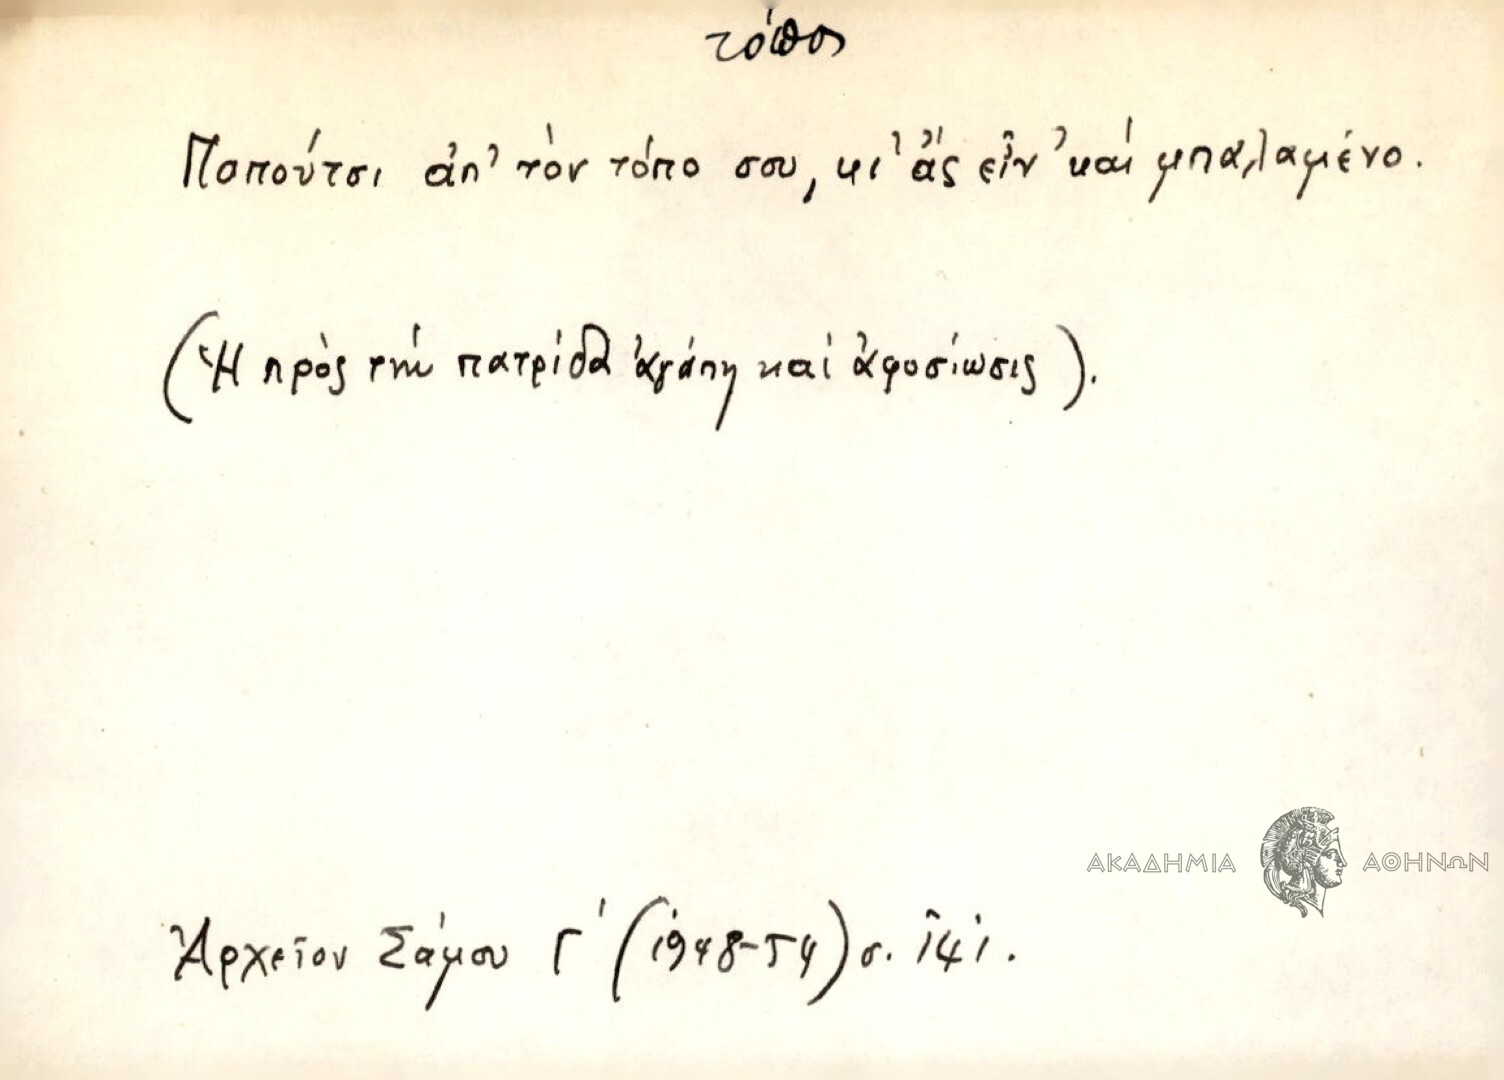 τόπος
Παπούτσι ἀπ' τὸν τόπο σου, κι' ἄς εἶν' καὶ μπαλαμένο.
(Ἡ πρὸς τὴν πατρίδα ἀγάπη καὶ ἀφοσίωσις).
ΑΚΑΔΗΜΙΑ ΑΘΗΝΩΝ
Ἀρχεῖον Σάμου Γ' (1948-54) σ. 141.